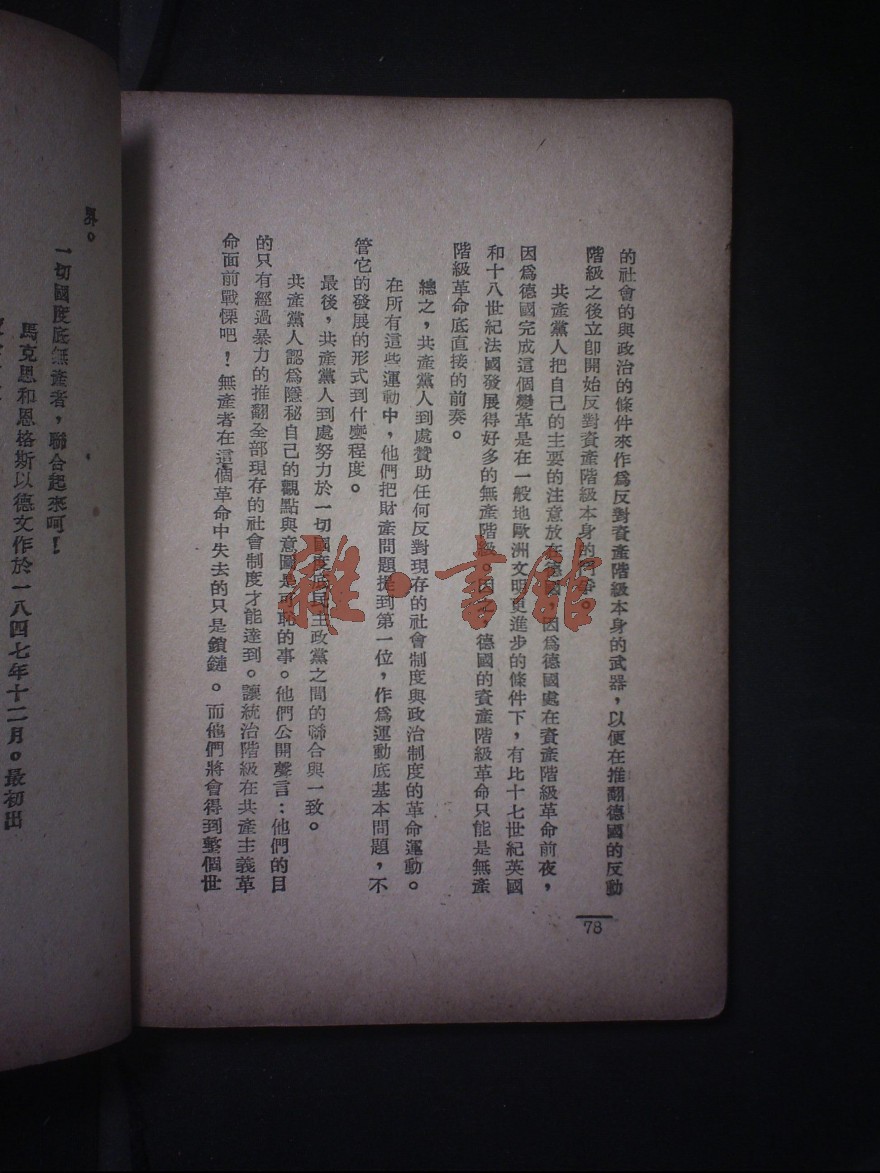 的社會的與政治的條件來作爲反對資產階級本身的武器，以便在推翻德國的反動
階級之後立即開始反對資產階級本身的鬥爭。
共產黨人把自己的主要的注意放在德國，因爲德國處在資產階級革命前夜，
因爲德國完成這個變革是在一般地歐洲文明更進步的條件下，有比十七世紀英國
和十八世紀法國發展得好多的無產階級。因之，德國的資產階級革命只能是無產
階級革命底直接的前奏。
總之，共產黨人到處贊助任何反對現存的社會制度與政治制度的革命運動。
在所有這些運動中，他們把財產問題提到第一位，作爲運動底基本問題，不
管它的發展的形式到什麼程度。
最後，共產黨人到處努力於一切國度底民主政黨之間的聯合與一致。
共產黨人認爲隱秘自己的觀點與意圖是可恥的事。他們公開聲言：他們的目
的只有經過暴力的推翻全部現存的社會制度才能達到。讓統治階級在共產主義革
命面前戰慄吧！無產者在這個革命中失去的只是鎖鏈。而他們將會得到整個世
78
界。
一切國度底無產者，聯合起來呵！
馬克思和恩格斯以德文作於一八四七年十二月。最初出
雜·書館